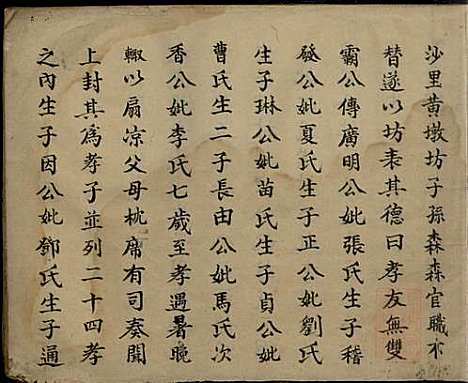 沙里黄墩坊子孫森森官職不
替遂以坊表其德曰孝友無雙
霸公傳廣明公妣張氏生子稽
發公妣夏氏生子正公妣劉氏
生子琳公妣苗氏生子貞公妣
曹氏生二子長由公妣馬氏次
香公妣李氏七歲至孝遇暑晚
輙以扇凉父母枕席有司奏聞
上封其為孝子並列二十四孝
之內生子因公妣鄧氏生子通